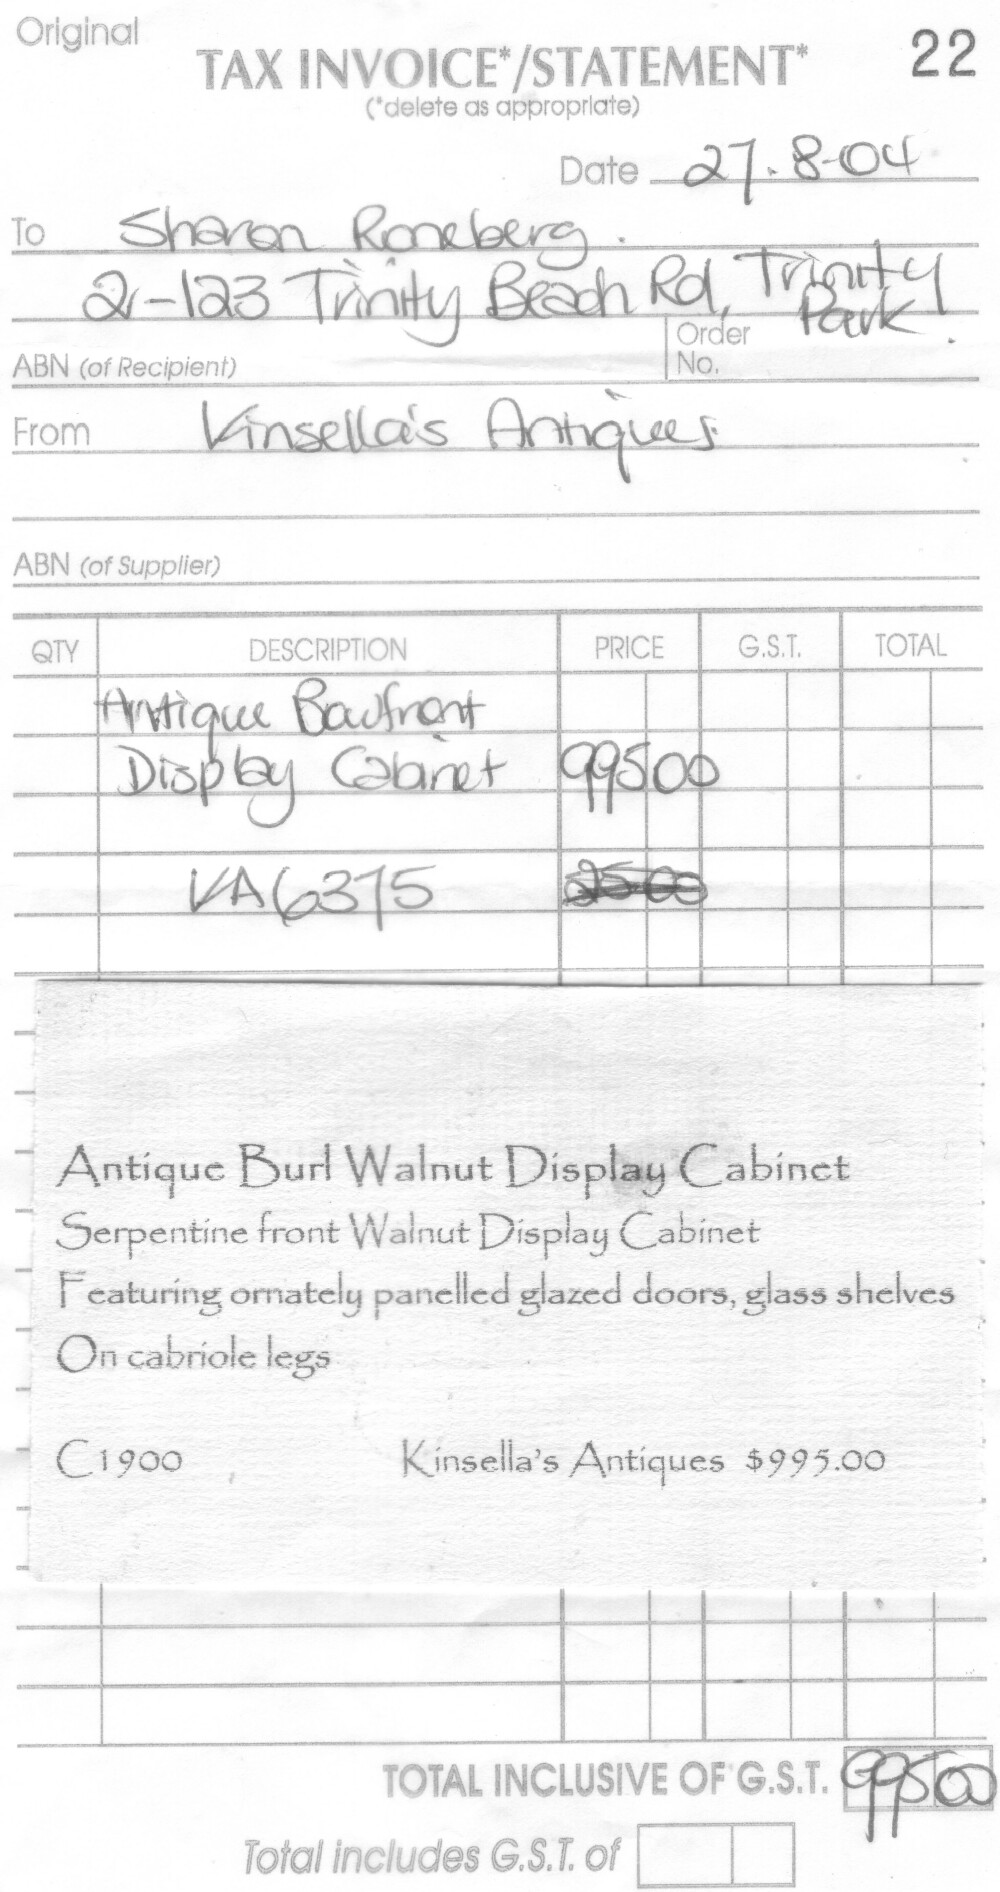 Original
TAX INVOICE*/STATEMENT*
22
(*delete as appropriate)
Date 27.8-04
To Sharon Roneberg.
2-123 Trinity Beach Rd, Trinity
Park.
Order
No.
ABN (of Recipient)
From Kinsella's Antiques
ABN (of Supplier)
QTY DESCRIPTION PRICE G.S.T. TOTAL
Antique Bowfront
Display Cabinet 99500
VA6375 2500
Antique Burl Walnut Display Cabinet
Serpentine front Walnut Display Cabinet
Featuring ornately panelled glazed doors, glass shelves
On cabriole legs
C1900 Kinsella's Antiques $995.00
TOTAL INCLUSIVE OF G.S.T. 99500
Total includes G.S.T. of